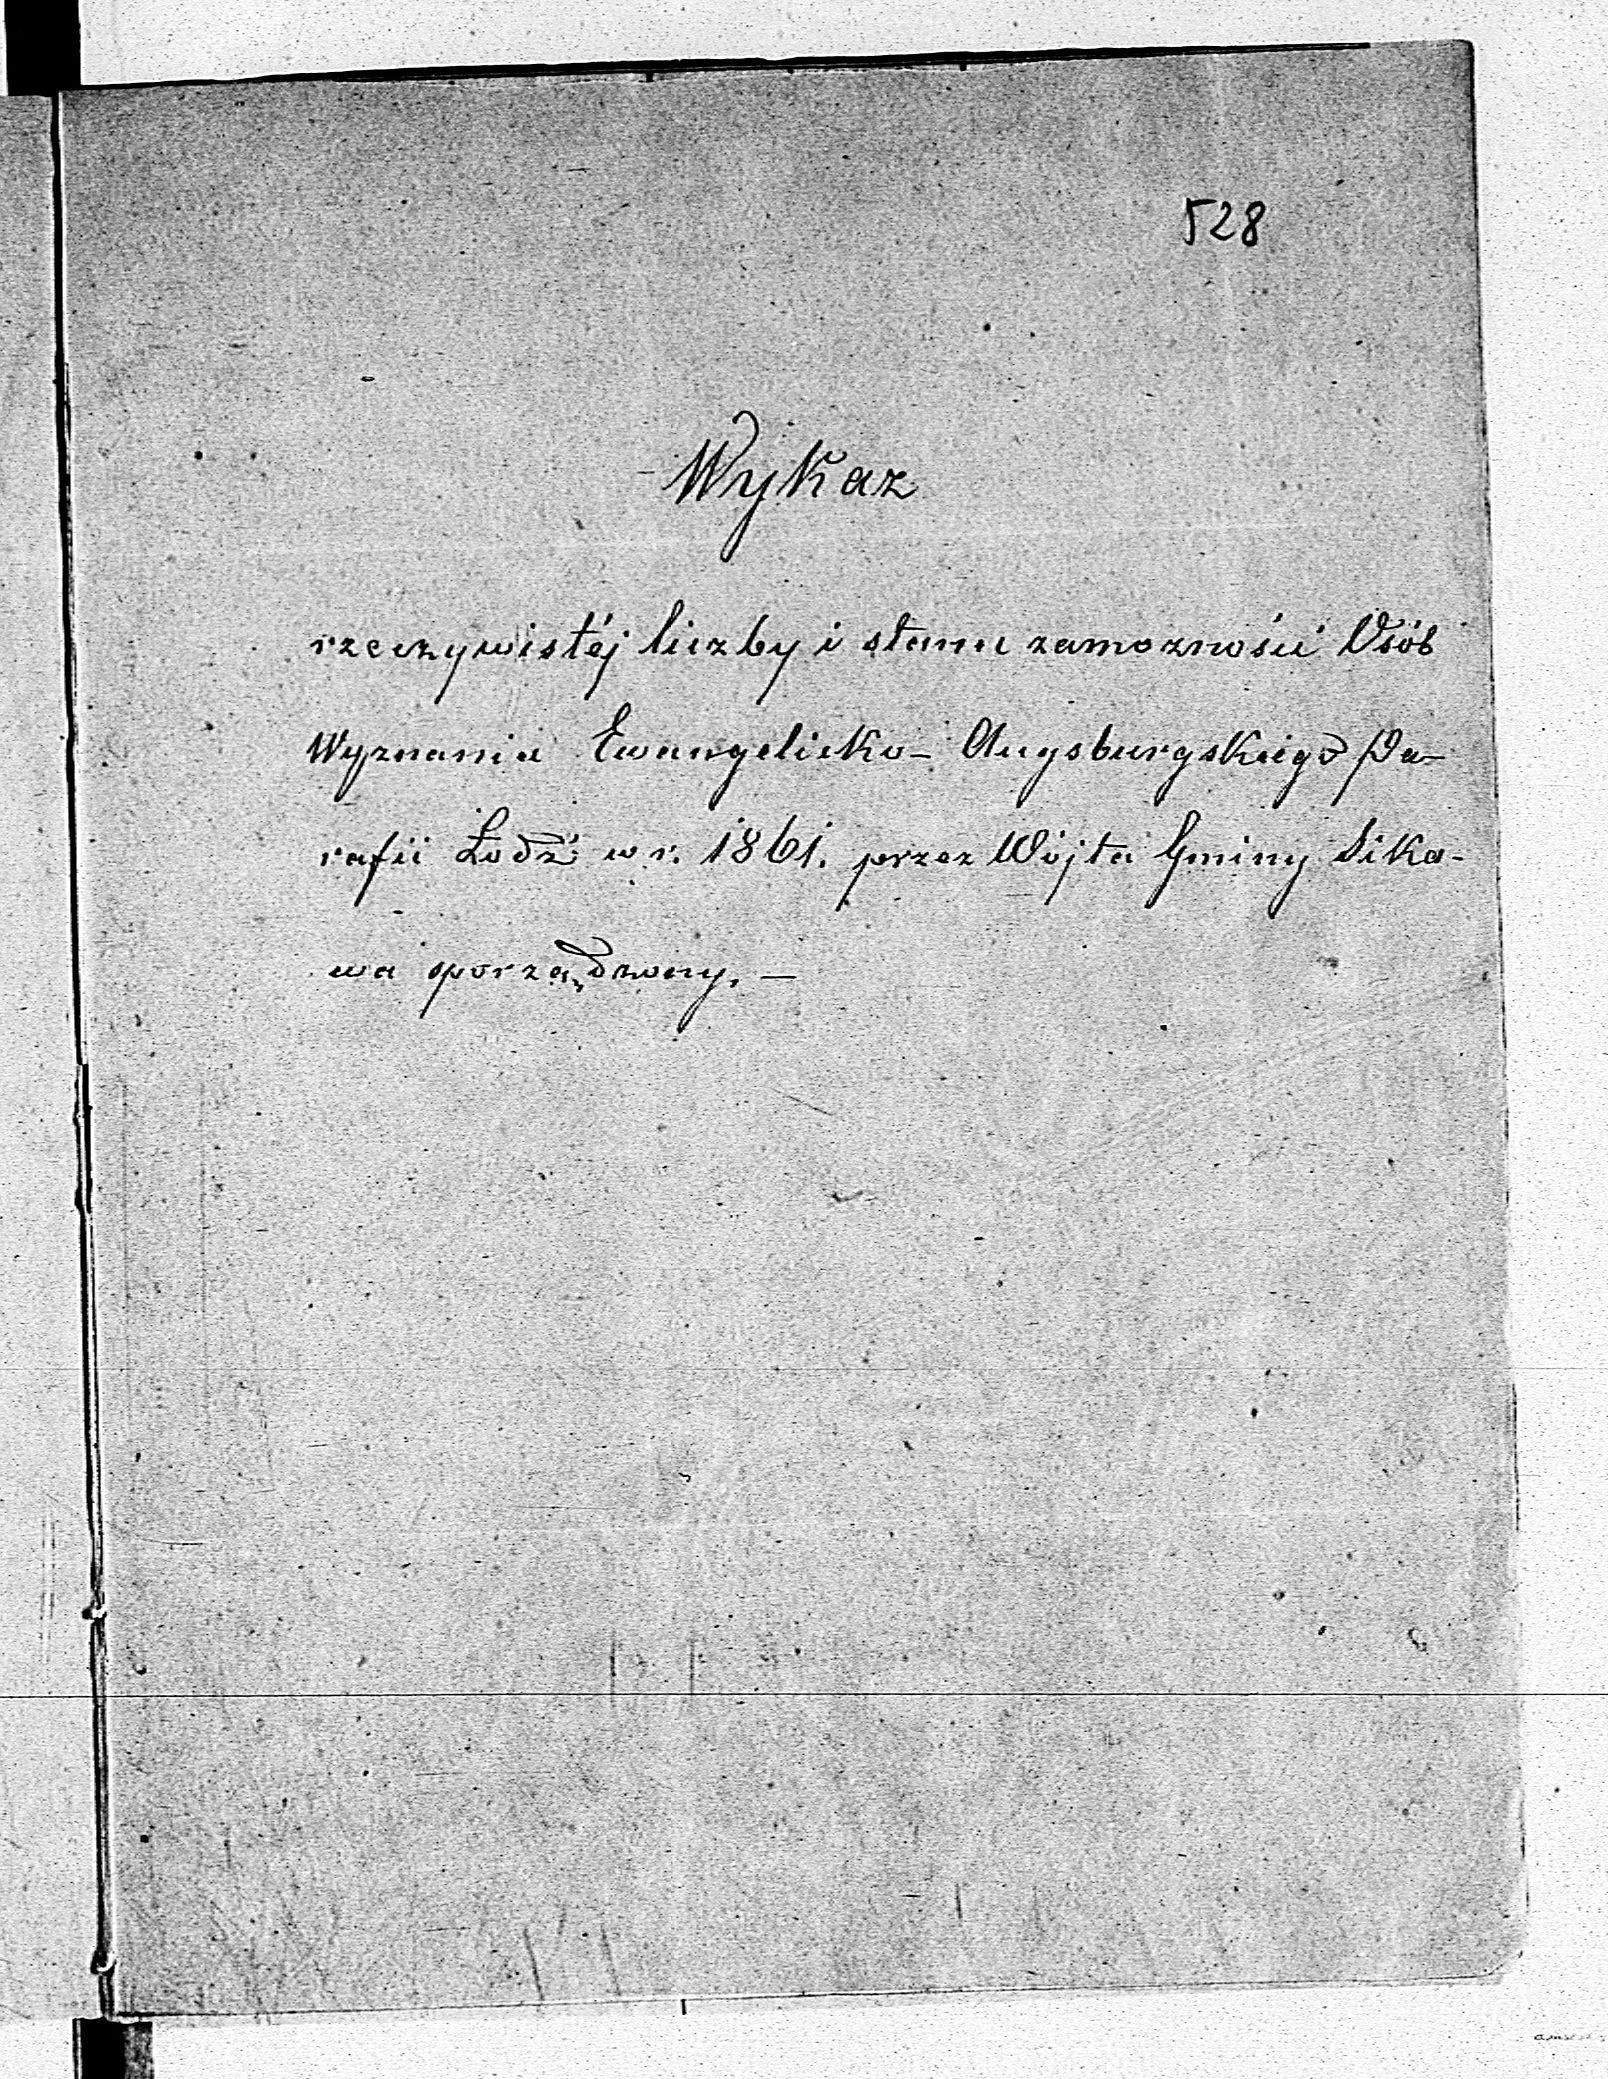 528
Wykaz
rzeczywistéj liczby i stanu zamożności Osób
Wyznania Ewangelicko- Augsburgskiego Pa-
rafii Łodź w r. 1861. przez Wójta Gminy Sika-
wa sporządzony. —